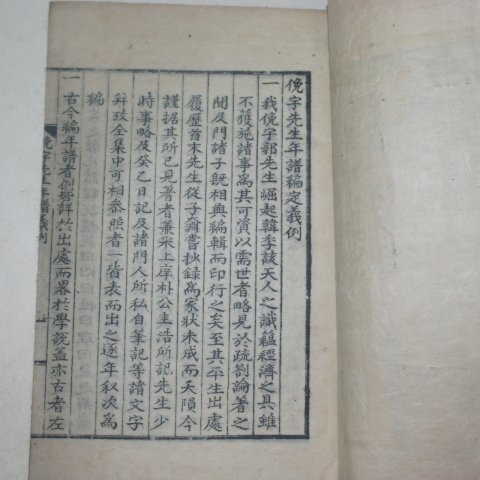 俛宇先生年譜編定義例
一我俛宇郭先生崛起韓季該天人之識蘊經濟之具雖
不獲施諸事爲其可資以需世者略見於疏劄論著之
間及門諸子既相與編輯而印行之矣至其平生出處
履歷首末先生從子奫嘗抄錄爲家狀未成而天隕今
謹据其所已見著者兼采上庠朴公圭浩所記先生少
時事略及癸乙日記及諸門人所私自筆記等諸文字
幷攷全集中可相叅照者一皆表而出之逐年叙次爲
編
一古今編年譜者例皆詳於出處而畧於學說盖亦古者左
俛宇先生年譜義例